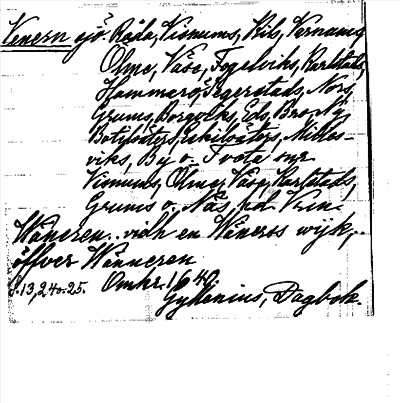 Venern sjö. Råda, Visnums, Kils, Vernums,
Ölme, Väse, Fogelviks, Karlstads,
Hammarö, Segerstads, Nors,
Grums, Borgviks, Eds, Bro, Ny
Botilsäters, Eskilsäters, Millesviks,
By o. Tveta snr
Visnums, Ölme, Väse, Karlstads,
Grums o. Näs hd Vän.
Wäneren.. widh en Wäneres wijk,..
öffver Wänneren
s. 13, 24 o. 25. Omkr. 1640
Gyllenius, Dagbok.